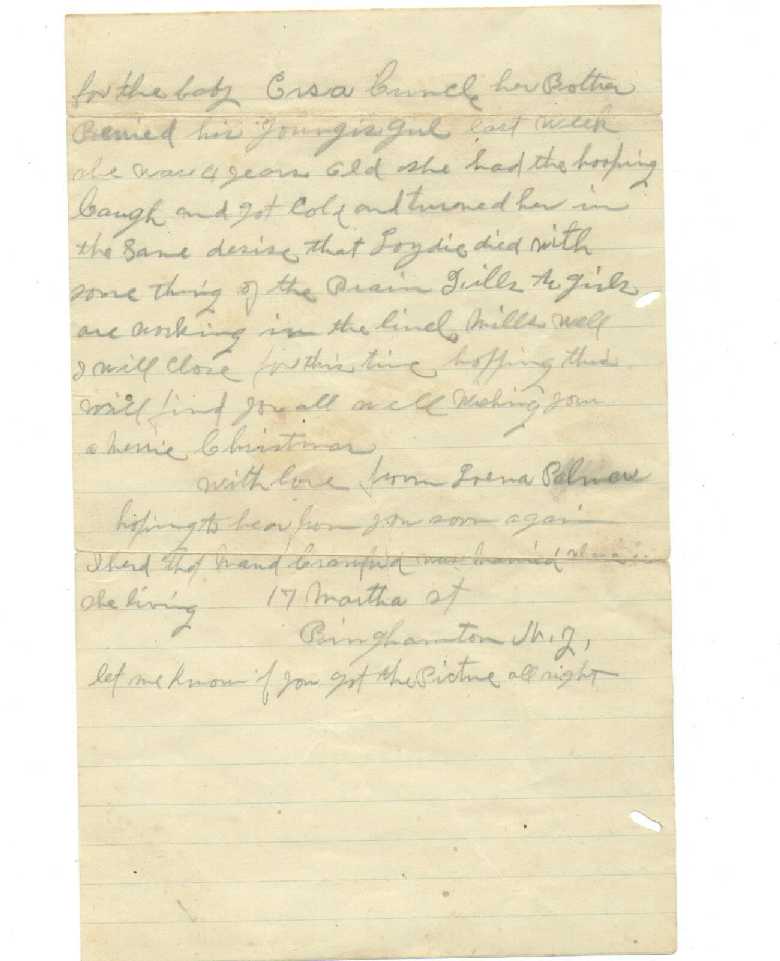 for the baby Ersa her Brother
Beried his Youngis Gul last week
she was 4 years Old she had the hooping
Caugh and got Cold and turned her in
the Same desise that died with
some thing of the Brain the girls
are working in the Mills well
I will Close for this time hopping this
will find you all well Wishing you
a Merrie Christmas
with love from Palmer
hoping to hear from you soon again
I herd that Maud Cranford was married
she living 17 Martha st
Binghamton N.Y,
let me know if you got the Picture all right